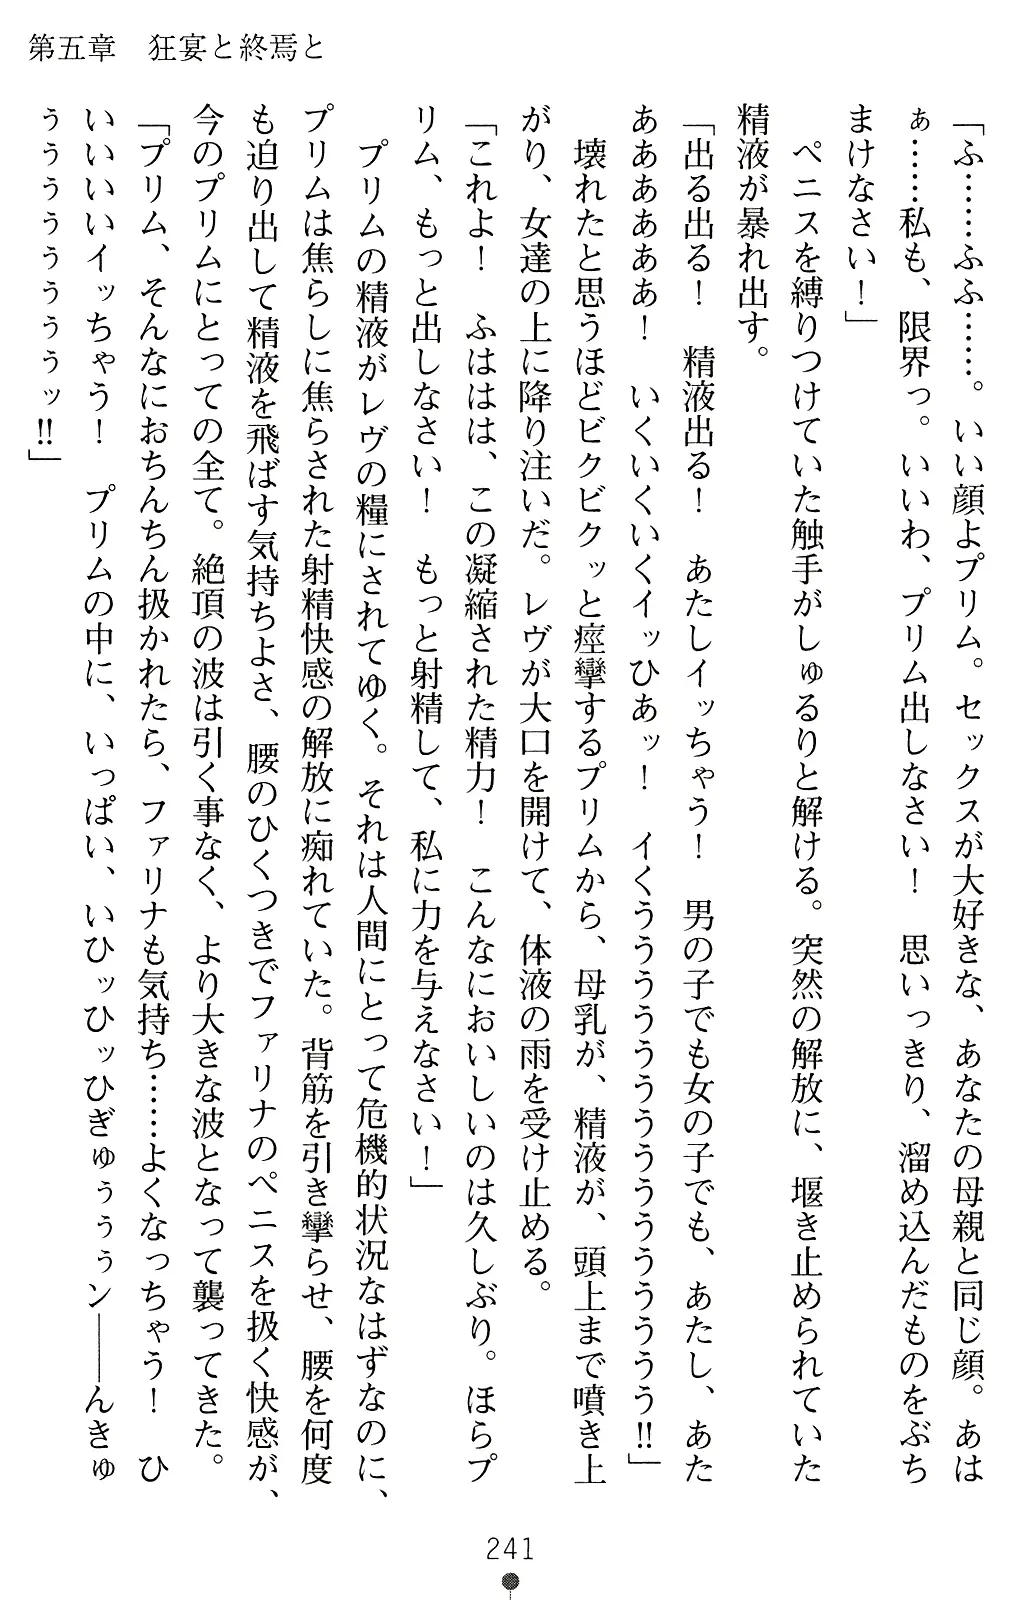 第五章　狂宴と終焉と
「ふ……ふふ……。いい顔よプリム。セックスが大好きな、あなたの母親と同じ顔。あは
ぁ……私も、限界っ。いいわ、プリム出しなさい！　思いっきり、溜め込んだものをぶち
まけなさい！」
　ペニスを縛りつけていた触手がしゅるりと解ける。突然の解放に、堰き止められていた
精液が暴れ出す。
「出る出る！　精液出る！　あたしイッちゃう！　男の子でも女の子でも、あたし、あた
ああああああ！　いくいくいくイッひあッ！　イくううううううううううううう‼」
　壊れたと思うほどビクビクッと痙攣するプリムから、母乳が、精液が、頭上まで噴き上
がり、女達の上に降り注いだ。レヴが大口を開けて、体液の雨を受け止める。
「これよ！　ふははは、この凝縮された精力！　こんなにおいしいのは久しぶり。ほらプ
リム、もっと出しなさい！　もっと射精して、私に力を与えなさい！」
　プリムの精液がレヴの糧にされてゆく。それは人間にとって危機的状況なはずなのに、
プリムは焦らしに焦らされた射精快感の解放に痴れていた。背筋を引き攣らせ、腰を何度
も迫り出して精液を飛ばす気持ちよさ、腰のひくつきでファリナのペニスを扱く快感が、
今のプリムにとっての全て。絶頂の波は引く事なく、より大きな波となって襲ってきた。
「プリム、そんなにおちんちん扱かれたら、ファリナも気持ち……よくなっちゃう！　ひ
いいいいイッちゃう！　プリムの中に、いっぱい、いひッひッひぎゅぅぅぅン――んきゅ
ぅぅぅぅぅぅぅぅッ‼」
241